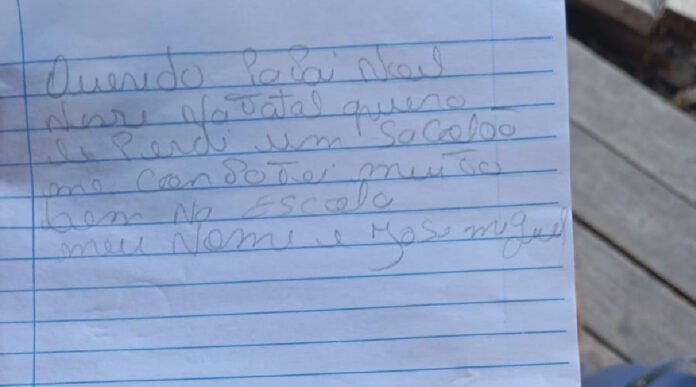 Querido Papai Noel
Nesse Natatal quero
le Perdi um Sacolão
me Conpotei muito
bem No Escola
meu Nome e Jose miguel